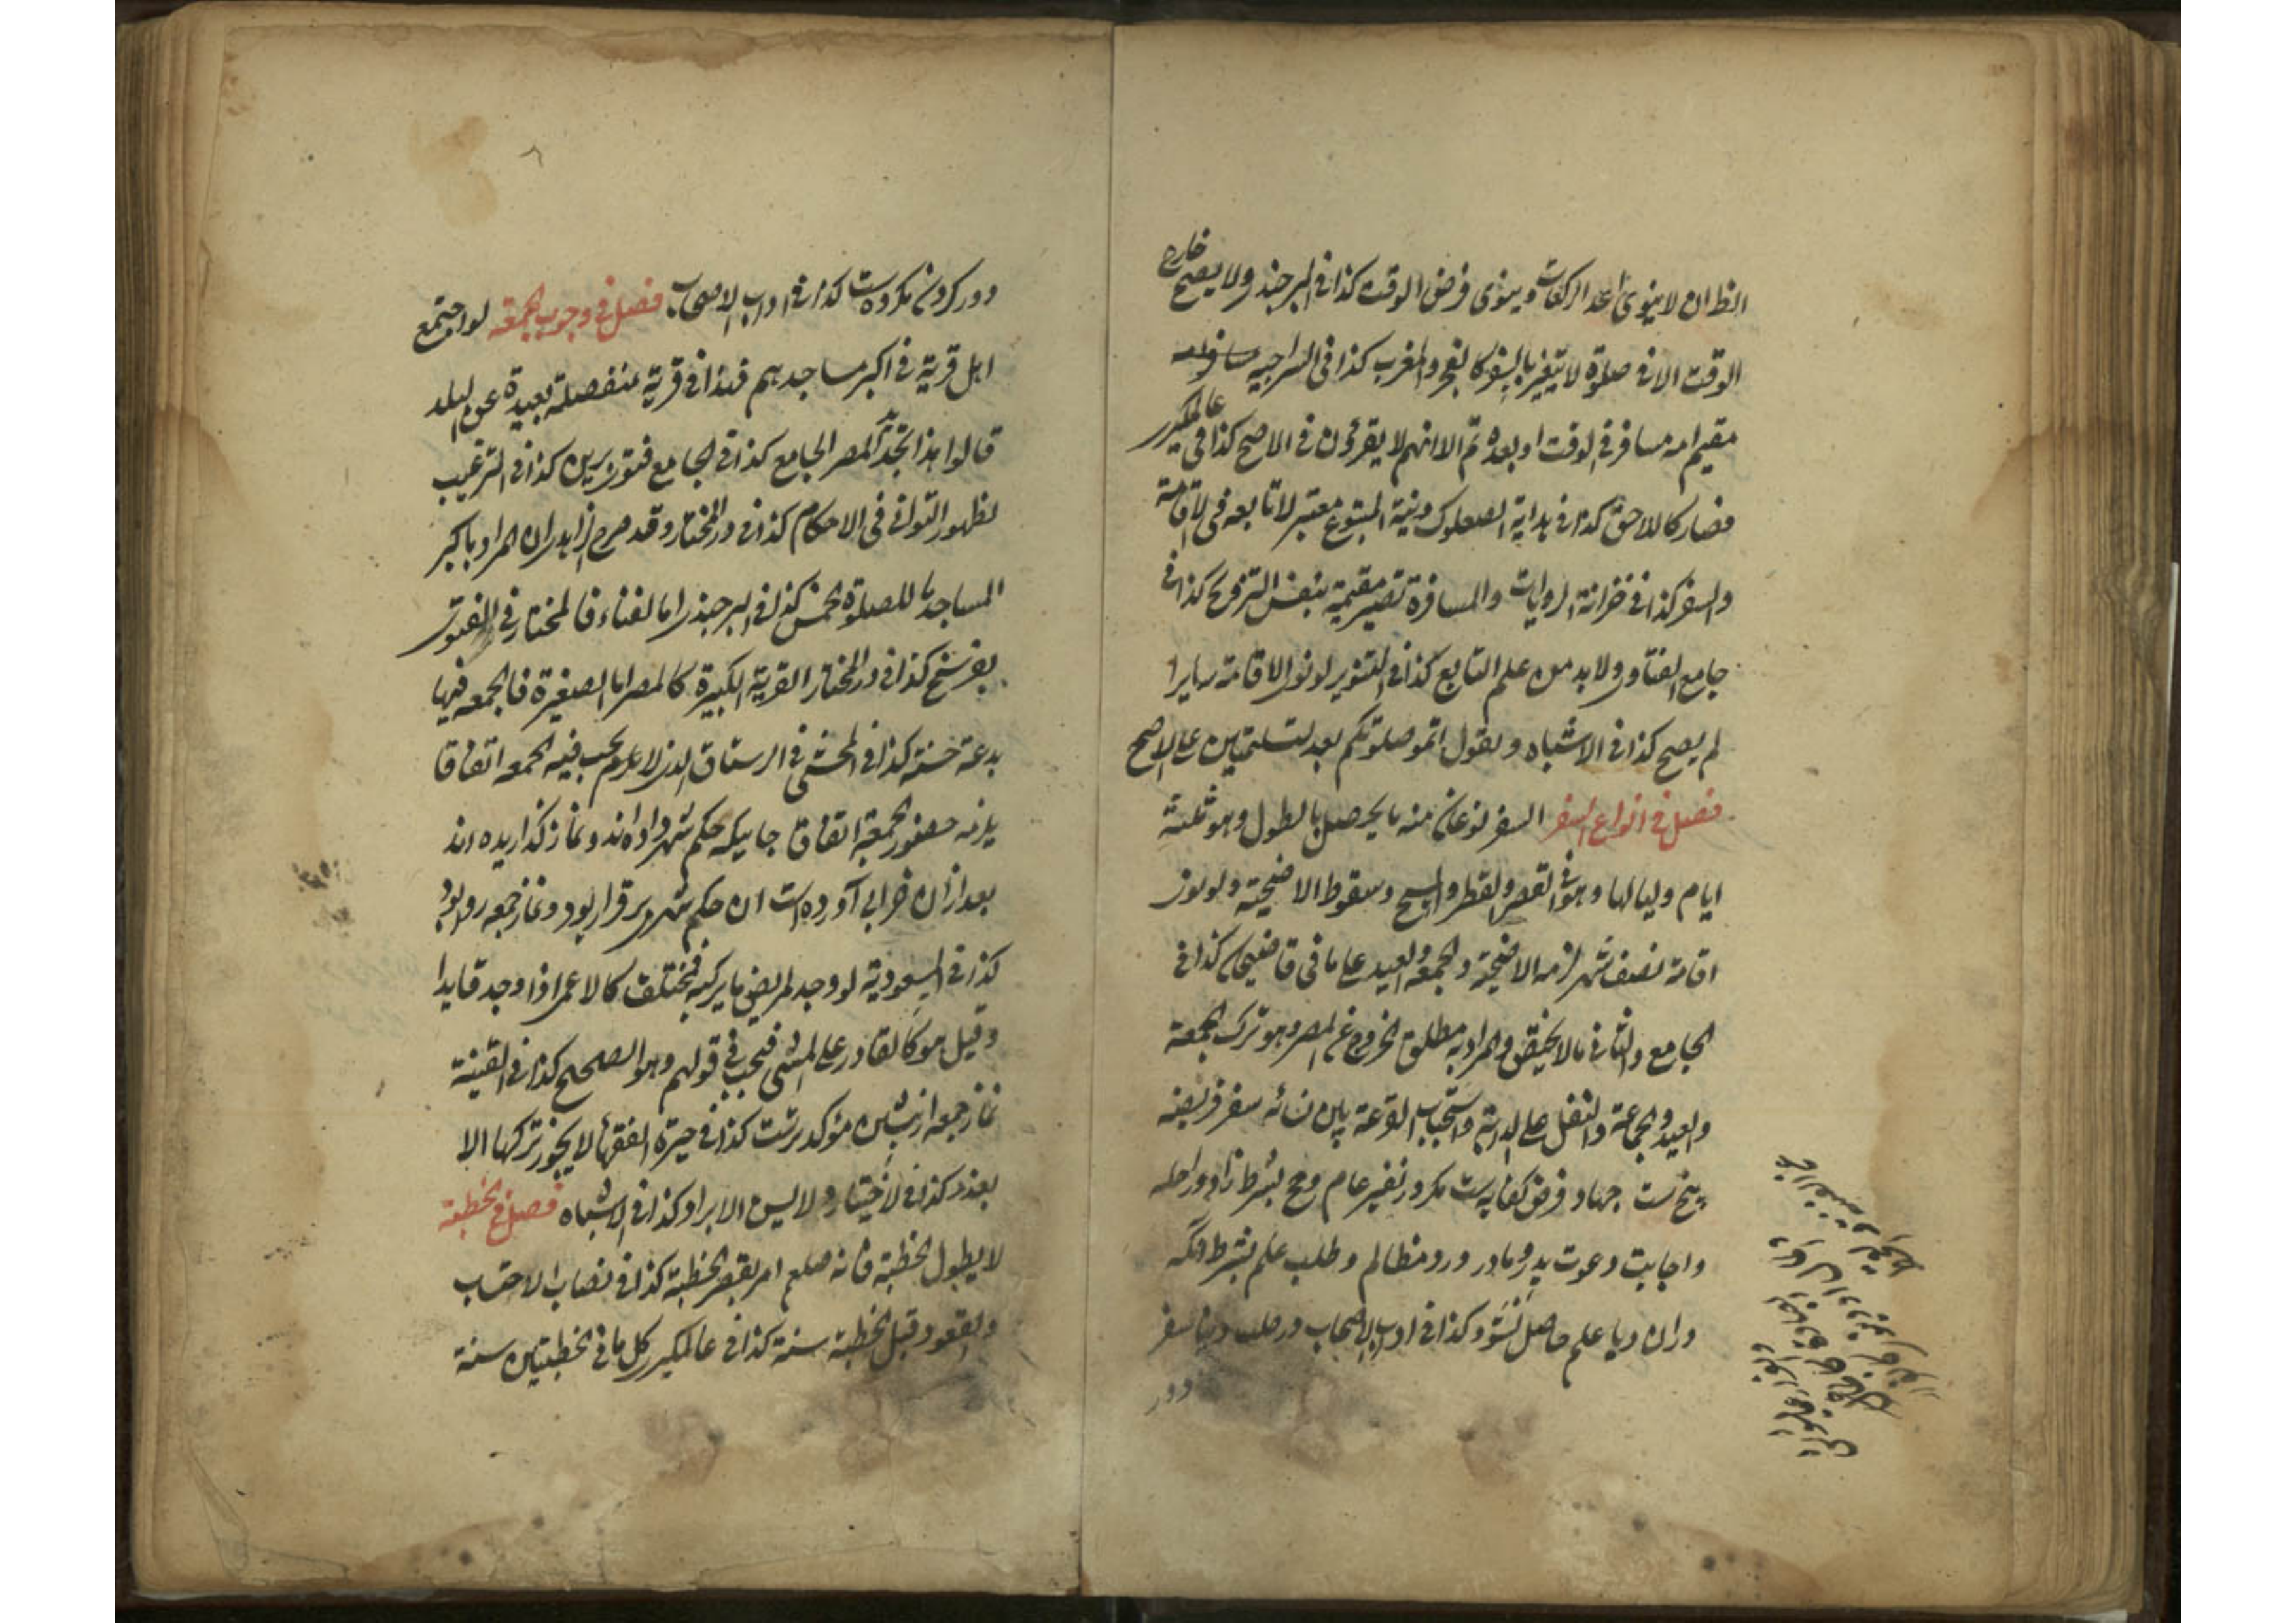 الظ ان لا ینوی اعداد الرکعات وینوی فرض الوقت کذا فی البرجندی ولا یصح خارج
الوقت الا فی صلوٰة لا یتغیر بالسفر کالفجر والمغرب کذا فی السراجیه مسافر امه
مقیم امه مسافر فی الوقت او بعده تم الا انهم لا یقرؤن فی الاصح کذا فی عالمکیری
فصار کاللاحق کذا فی هدایة الصعلوک ونیة المتبوع معتبر لا تابعه فی الاقامة
والسفر کذا فی خزانة الروایات والمسافرة تصیر مقیمة بنفس التزوج کذا فی
جامع الفتاوی ولا بد من علم التابع کذا فی التنویر لو نوی الاقامة سایرا
لم یصح کذا فی الاشباه ویقول اتموا صلوتکم بعد التسلیمتین علی الاصح
فصل فی انواع السفر السفر نوعان منه ما یحصل بالطول وهو ثلثة
ایام ولیالها وهو فی القصر والفطر والمسح وسقوط الاضحیة ولو نوی
اقامة نصف شهر لزمه الاضحیة والجمعة والعید علی ما فی قاضیخان کذا فی
الجامع والثانی ما لا یختص والمراد به مطلق الخروج عن المصر وهو ترک الجمعة
والعید والجماعة والنفل علی الدابة واستحباب القرعة بین نسائه سفر فریضه
پنج ست جهاد و فرض کفایه ست مکر در نفیر عام وحج بشرط زاد وراحله
واجابت دعوت پدر ومادر ورد مظالم وطلب علم بشرط انکه
دران دیار علم حاصل نشود کذا فی اداب الاصحاب در طلب دنیا سفر
دور
دور کردن مکروه ست کذا فی اداب الاصحاب فصل فی وجوب الجمعة لو اجتمع
اهل قریة فی اکبر مساجدهم فهذا فی قریة منفصلة بعیدة عن البلد
قالوا هذا تجدید المصر الجامع کذا فی الجامع فتوی برین کذا فی الترغیب
لظهور التوانی فی الاحکام کذا فی در المختار وقد صرح الزاهدی ان المراد باکبر
المساجد للصلوٰة الخمس کذا فی البرجندی اما الفناء فالمختار فی الفتوی
بفرسخ کذا فی در المختار القریة الکبیرة کالمصر اما الصغیرة فالجمعه فیها
بدعة حسنة کذا فی المحشی فی الرستاق الذی لا یجب فیه الجمعه اتفاقا
یلزمه حضور الجمعة اتفاقا جاییکه حکم شهر داده اند ونماز کذاریده اند
بعد ازان خرابی آورده است ان حکم شهر برقرار بود ونماز جمعه روا بود
کذا فی المسعودیة لو وجد المریض ما یرکبه فمختلف کالاعمی اذا وجد قایدا
وقیل هو کالقادر علی المشی فیجب فی قولهم وهو الصحیح کذا فی القنیة
نماز جمعه از پیشین مؤکد ترست کذا فی حیرة الفقهاء لا یجوز ترکها الا
بعذر کذا فی الاختیار ولا یسن الابراد کذا فی الاشباه فصل فی الخطبة
لا یطول الخطبة فانه صلعم امر بقصر الخطبة کذا فی نصاب الاحتساب
والقعود قبل الخطبة سنة کذا فی عالمکیری کل ما فی الخطبتین سنة